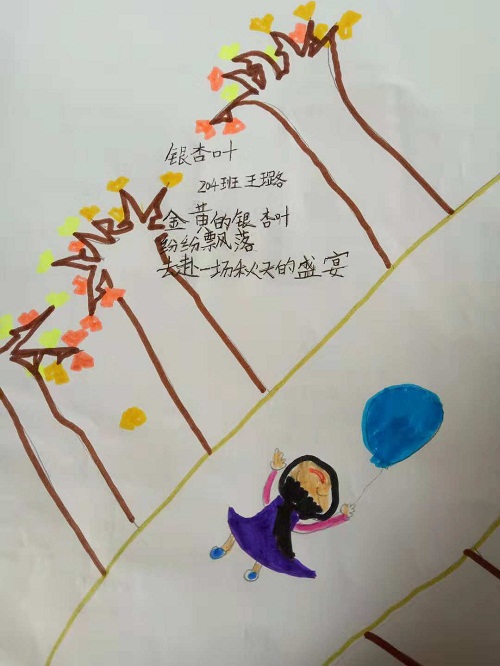 银杏叶
204班 王璐路
金黄的银杏叶
纷纷飘落
去赴一场秋天的盛宴